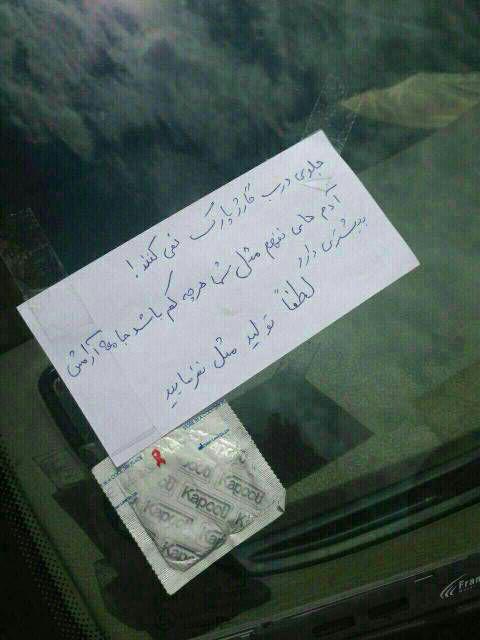 جلوی درب گاراژ پارک نمی کنند!
آدم های نفهم مثل شما هرچه کم باشد جامعه آرامش
بیشتری دارد
لطفاً تولید مثل نفرمایید
Kapoot
Kapoot
Kapoot
Kapoot
Fran